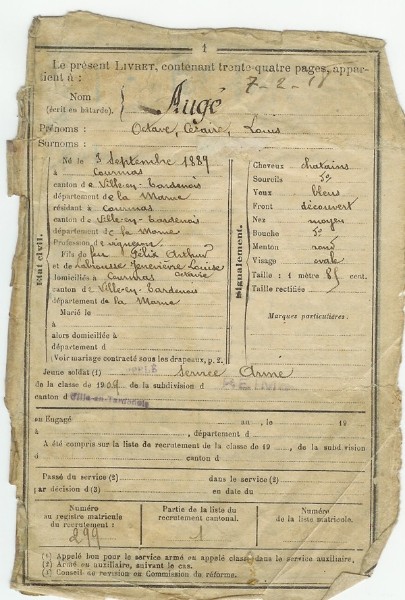 1
Le présent LIVRET, contenant trente-quatre pages, appar-
tient à : 7-2-11
Nom (écrit en bâtarde). Augé
Prénoms : Octave, Césaire, Louis
Surnoms :
État civil.
Né le 3 Septembre 1889
à Courmas
canton de Ville-en-Tardenois
département de la Marne
résidant à Courmas
canton de Ville-en-Tardenois
département de la Marne
Profession de vigneron
Fils de feu Félix Arthur
et de Lahousse Geneviève Louise
Octavie
domiciliés à Courmas
canton de Ville-en-Tardenois
département de la Marne
Marié le
à
alors domiciliée à
département d
(Voir mariage contracté sous les drapeaux, p. 2.
Signalement.
Cheveux chatains
Sourcils do
Yeux bleus
Front découvert
Nez moyen
Bouche do
Menton rond
Visage ovale
Taille : 1 mètre 85 cent.
Taille rectifiée
Marques particulières.
Jeune soldat (1) service Armé
de la classe de 1909 de la subdivision d REIMS
canton d Ville-en-Tardenois
au Engagé au , le 19
à , département d
A été compris sur la liste de recrutement de la classe de 19 , de la subdivision
d canton d
Passé du service (2) dans le service (2)
par décision d (3) en date du
Numéro
au registre matricule
du recrutement :
299
Partie de la liste
du recrutement cantonal.
1
Numéro
de la liste matricule.
(1) Appelé bon pour le service armé ou appelé classé dans le service auxiliaire,
(2) Armé ou auxiliaire, suivant le cas.
(3) Conseil de revision ou Commission de réforme.